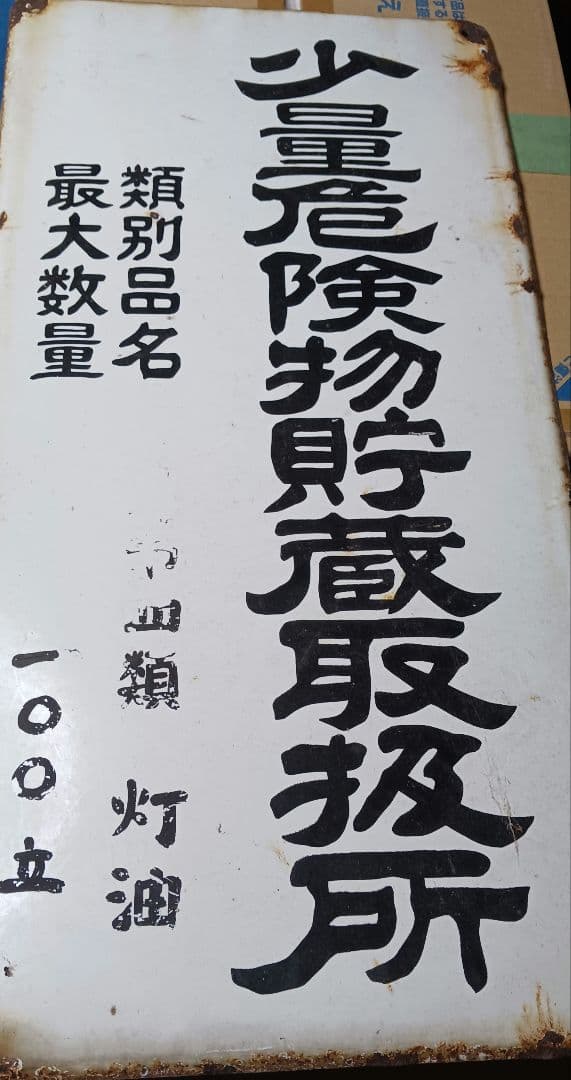 少量危険物貯蔵取扱所
類別品名 第四類 灯油
最大数量 一〇〇立